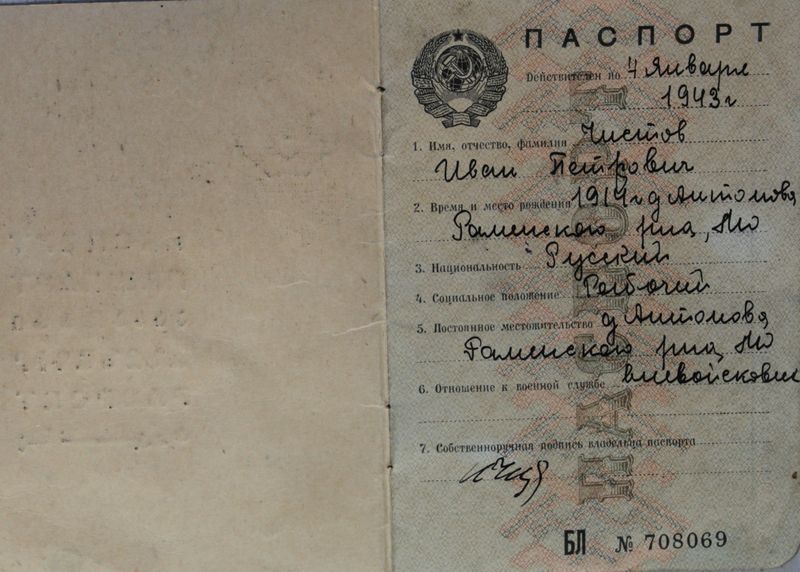 ПАСПОРТ
Действителен по 4 Января
1943 г
1. Имя, отчество, фамилия Чистов
Иван Петрович
2. Время и место рождения 1914 г д Антонова
Раменского рна, МО
3. Национальность Русский
4. Социальное положение Рабочий
5. Постоянное местожительство д Антонова
Раменского рна, МО
6. Отношение к военной службе вневойсковик
7. Собственноручная подпись владельца паспорта
БЛ № 708069
ПАСПОРТ